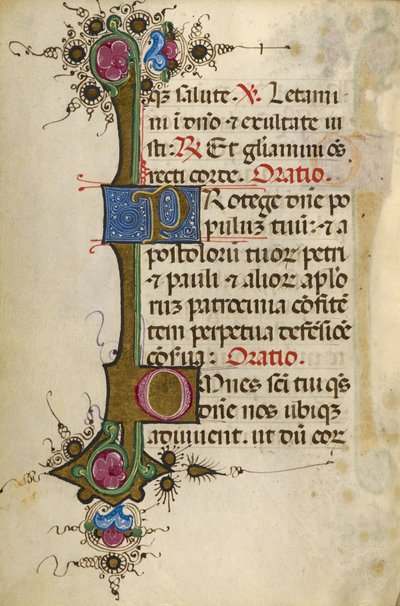 qꝫ salute. ℣. Letami-
ni ī dn̄o ⁊ exultate iu
sti: ℟ Et gl̄iamini oc̄s
recti corde. Oratio.
PRotege dn̄e po
puluꝫ tuū: ⁊ a
postoloꝝ tuoꝝ petri
⁊ pauli ⁊ alioꝝ apl̄o
ruꝫ patrocinia cōfidē
tem perpetua defēsiōe
cōs̄ua: Oratio.
OMnes sc̄i tui qs̄
dn̄e nos ubiqꝫ
adiuuent. ut dū eoꝝ